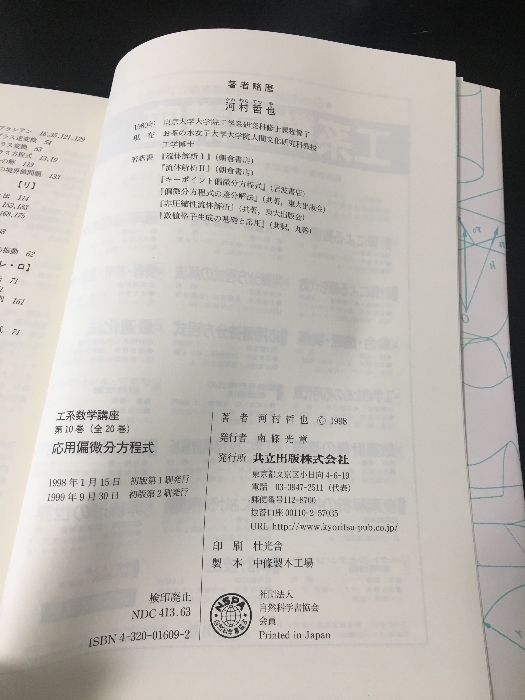 プラシアン 16,35,121,129
54
53
13,19
119
133
【リ】
法 114
152,162
169,175
38
の振動 62
レ・ロ】
71
51
161
71
著者略歴
かわ むら てつ や
河村哲也
1980年 東京大学大学院工学系研究科修士課程修了
現 在 お茶の水女子大学大学院人間文化研究科教授
工学博士
著訳書 『流体解析Ⅰ』(朝倉書店)
『流体解析Ⅱ』(朝倉書店)
『キーポイント偏微分方程式』(岩波書店)
『偏微分方程式の差分解法』(共著,東大出版会)
『非圧縮性流体解析』(共著,東大出版会)
『数値格子生成の基礎と応用』(共訳,丸善)
工系数学講座
第10巻(全20巻)
応用偏微分方程式
1998年1月15日 初版第1刷発行
1999年9月30日 初版第2刷発行
検印廃止
NDC 413.63
ISBN 4-320-01609-2
著 者 河村哲也 © 1998
発行者 南條光章
発行所 共立出版株式会社
東京都文京区小日向4-6-19
電話 03-3947-2511(代表)
郵便番号112-8700
振替口座00110-2-57035
URL http://www.kyoritsu-pub.co.jp/
印 刷 壮光舎
製 本 中條製本工場
NSPA
社団法人
自然科学書協会
会員
Printed in Japan